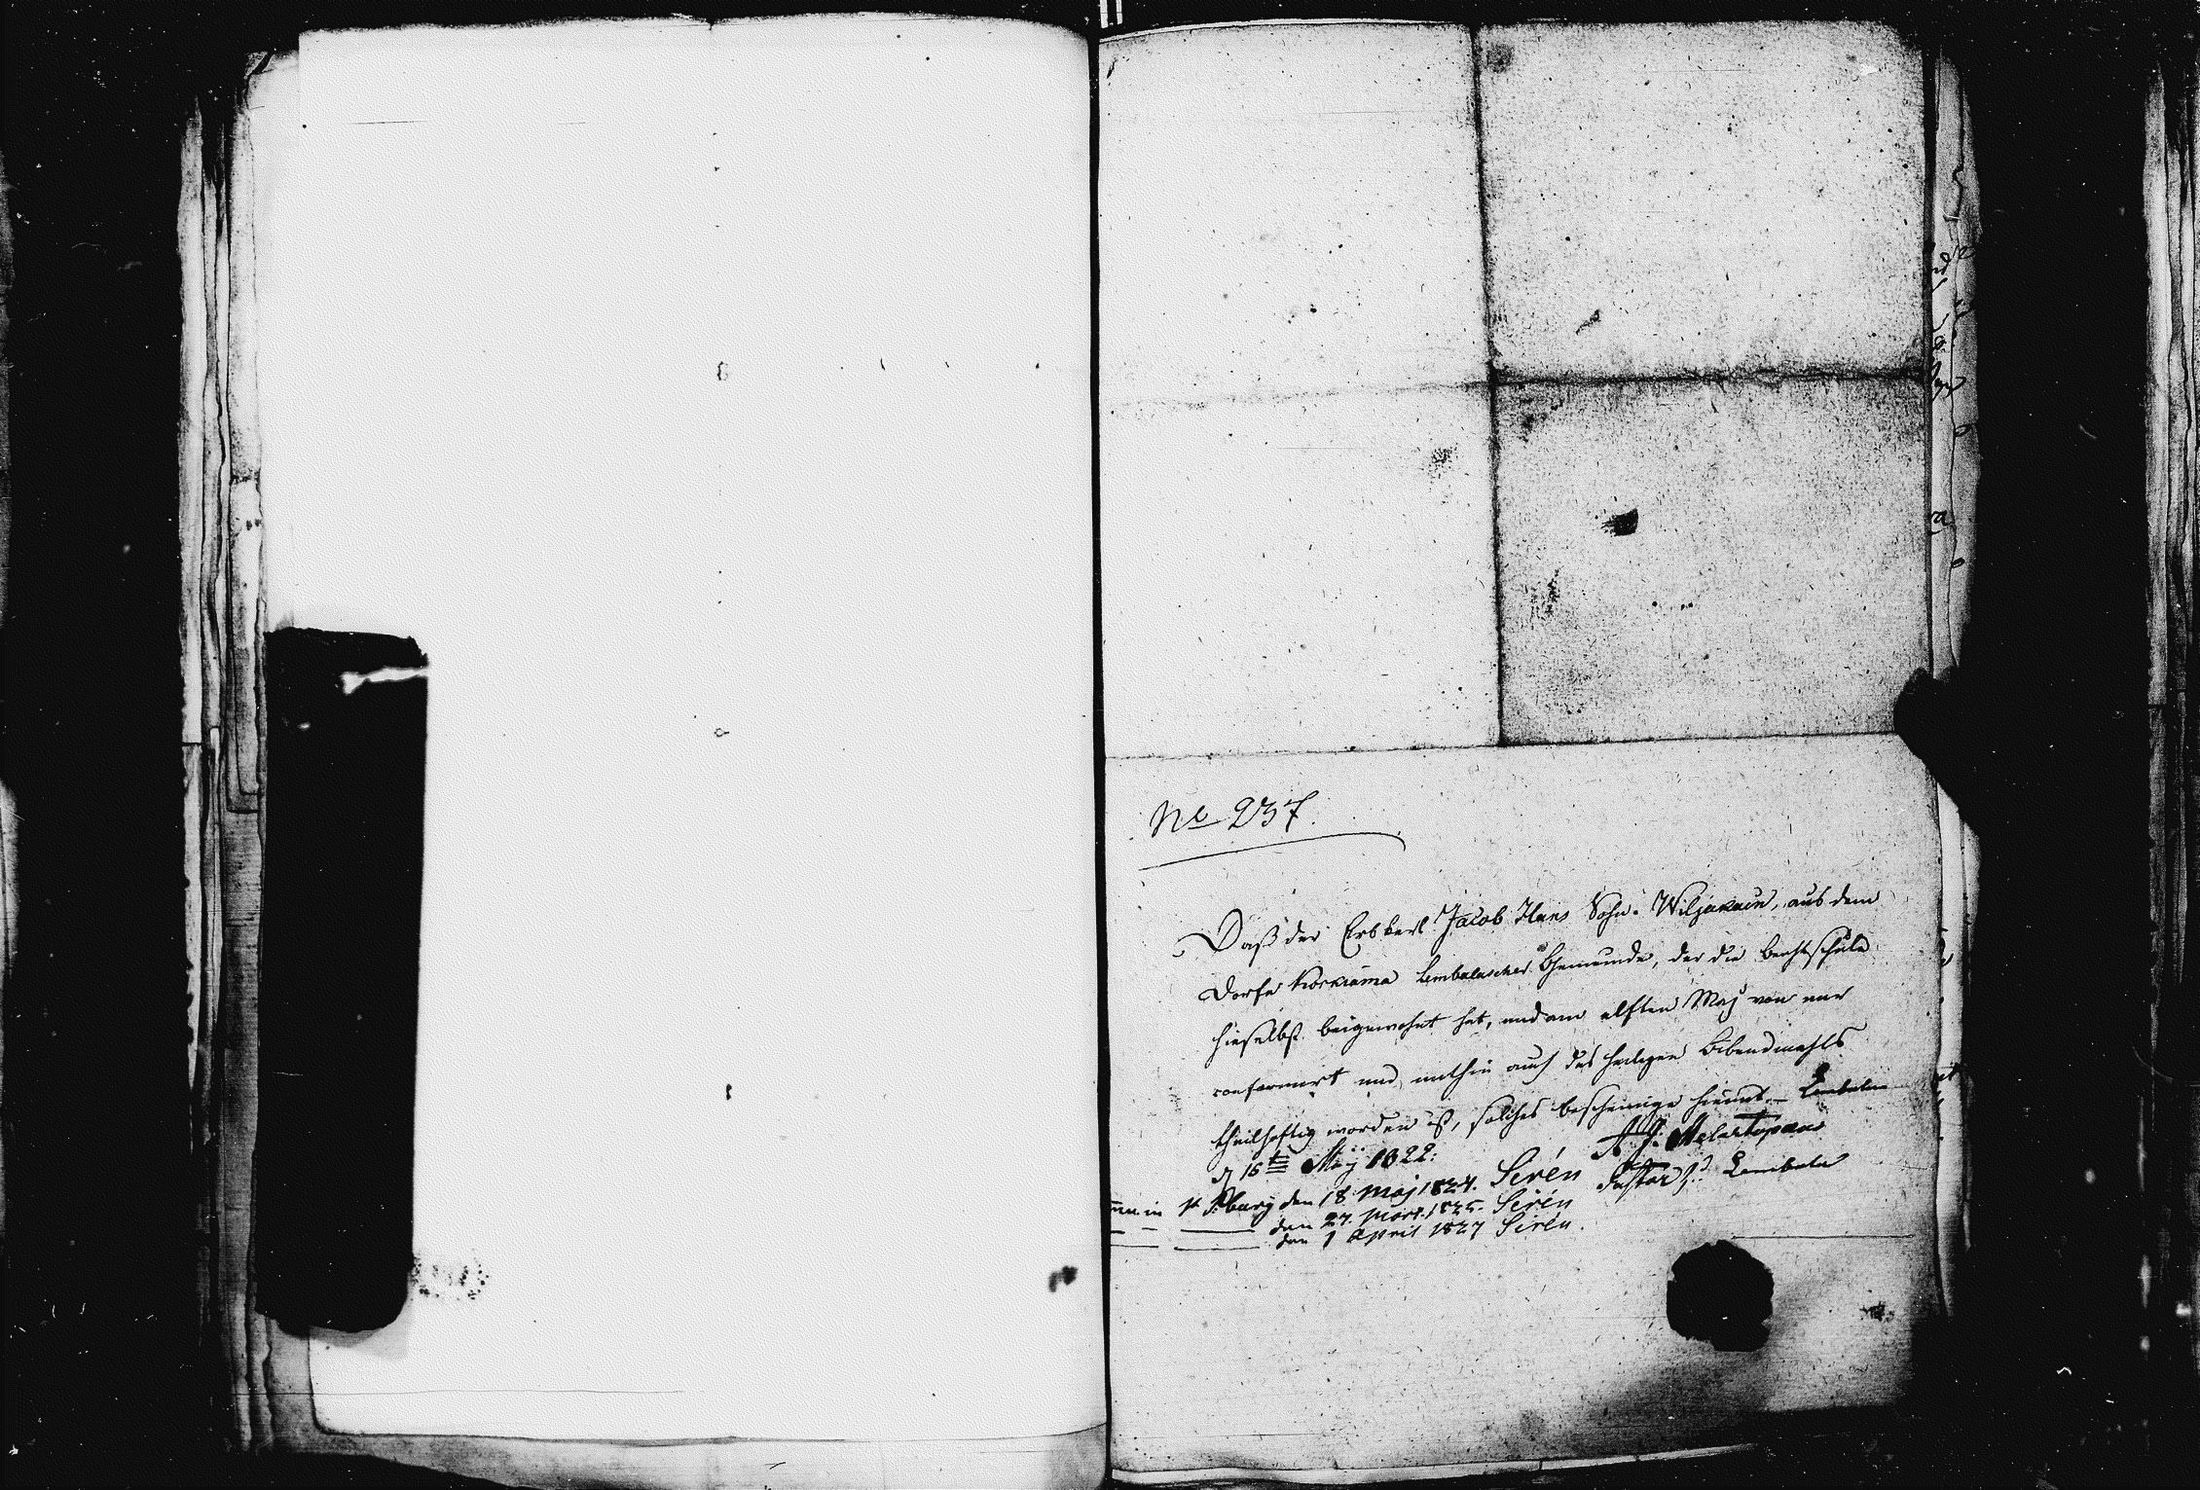 No 237.
Daß der Erbkerl Jacob Hans Sohn Wiljakain, aus dem
Dorfe Korkiama Lembalascher Gemeinde, der die Bethschule
hieselbst beigewohnt hat, und am elften Maj von mir
confirmirt und mithin auch des heiligen Abendmahls
theilhaftig worden ist, solches bescheinige hiemit. Lembala
d 16ten Maij 1822.
Pastor Lembala
in St P.burg den 18 Maj 1824. Sirén
den 27. Mart. 1825. Sirén
den 1 April 1827 Sirén.